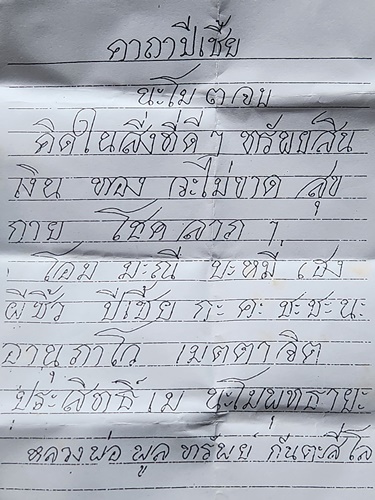 คาถาปี่เซี๊ย
นะโม ๓ จบ
คิดในสิ่งที่ดี ๆ ทรัพย์สิน
เงิน ทอง จะไม่ขาด สุข
กาย โชค ลาภ ๆ
โอม มะณี ปะหมี่ เฮง
ผีชิ้ว ปี่เซี๊ย กะ คะ ชะ ชะ นะ
อานุภาโว เมตตาจิต
ประสิทธิ์ เม นะโมพุทธายะ
หลวงพ่อ พูล ทรัพย์ กันตะสีโล